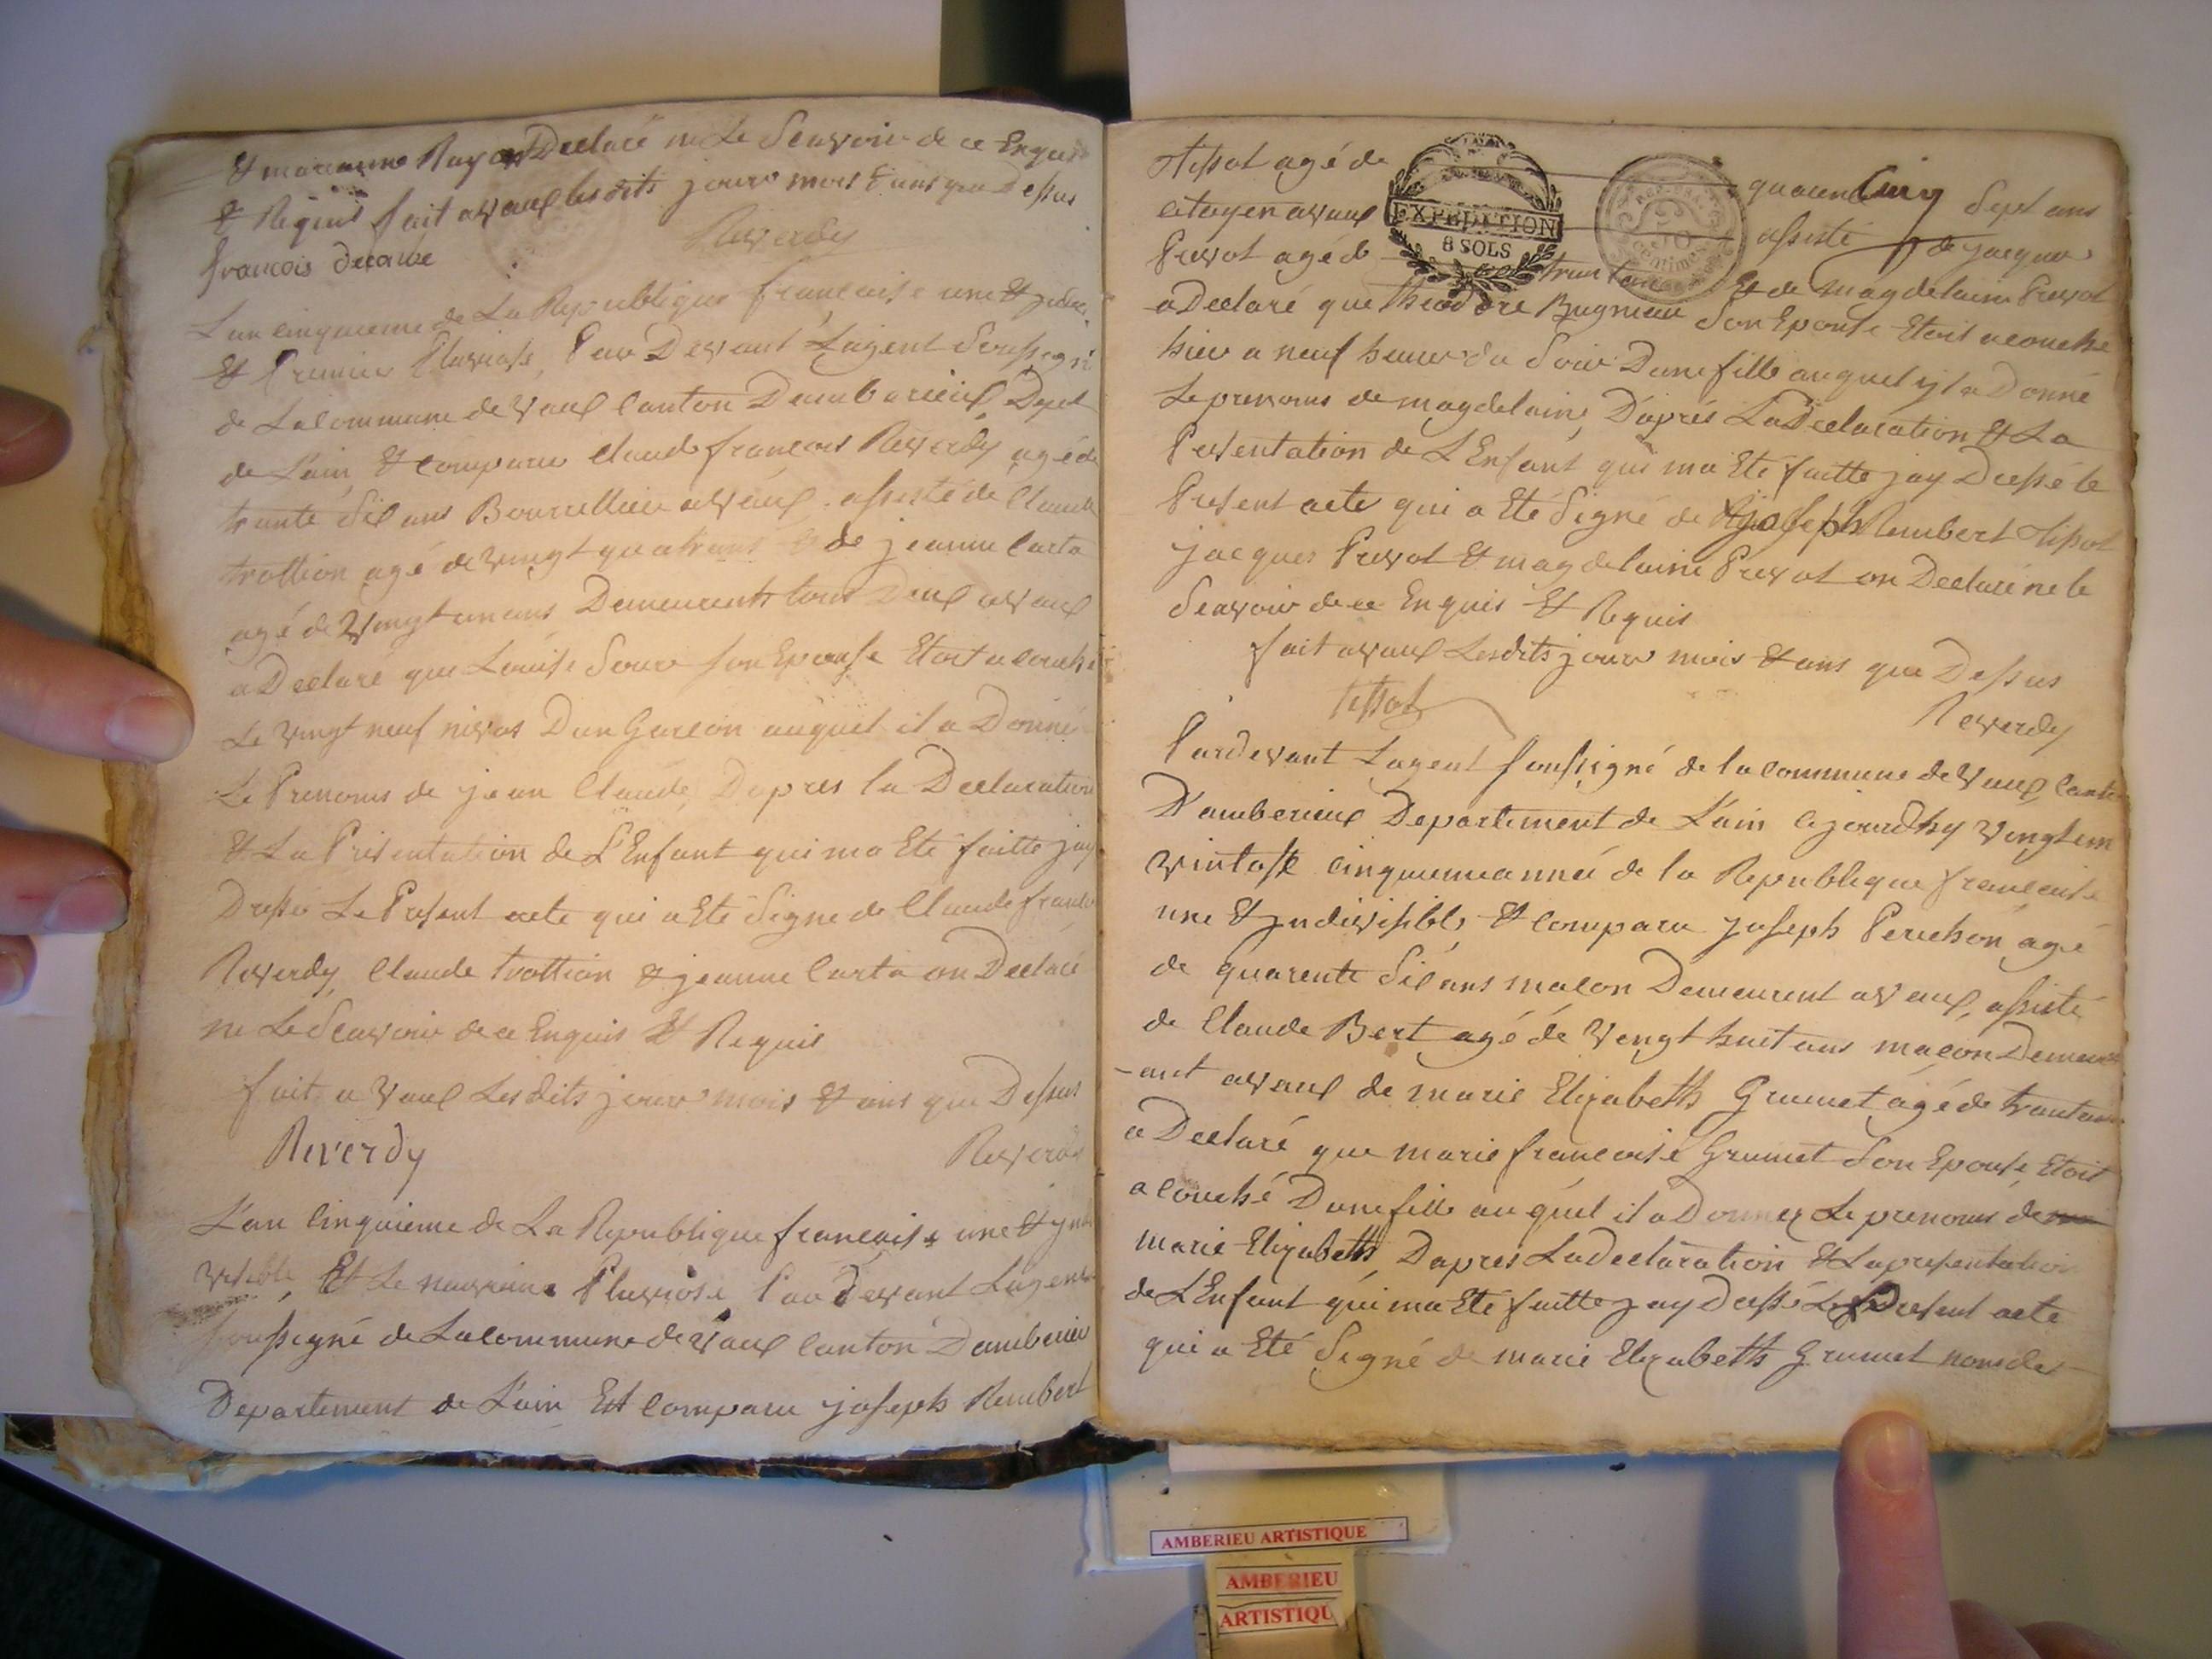 Et marianne Ray on Declaré ne Le Scavoir de ce Enquis
Et Requis fait a vaux les dits jour mois Et ans que Dessus
Reverdy
francois decombe
L'an cinquieme de La Republique francaise une Et Indi
Et Premier Pluviose, Par Devant L'agent Soussigné
de La Commune de Vaux Canton Dambarieux Dept
de L'ain, Et Comparu Claude francois Reverdy agé de
trante Six ans Bourrellier a Vaux assisté de Claude
trottion agé de Vingt quatre ans Et de jeanne Carta
agé de Vingt un ans Demeurents tous Deux a Vaux
a Declaré que Louise Sour son Epouse Etoit acouché
Le Vingt neuf nivos Dun Garcon auquel il a Donné
Le Prenoms de jean Claude, Dapres la Declaration
Et La Presentation de L'Enfant qui ma Eté faitte jay
Dressé Le Present acte qui a Eté Signe de Claude francois
Reverdy, Claude trottion Et jeanne Carta on Declaré
ne Le Scavoir de ce Enquis Et Requis
fait a Vaux Les dits jour mois Et ans que Dessus
Reverdy Reverdy
L'an Cinquieme de La Republique francaise une Et Yndi
visible, Et Le neuvieme Pluviose Par Devant Lagent
soussigné de La Commune de Vaux Canton Damberieu
Departement de L'ain Est Comparu joseph Rembert
Tissot agé de quaren Cinq Sept ans
citoyen a vaux assisté de jacque
EXPEDITION
8 SOLS
50
Centimes
Prevot agé de trente ans Et de Magdelaine Prevot
a Declaré que Theodore Bugniau Son Epouse Etoit acouché
hier a neuf heure du Soir Dune fille auquel yl a Donné
Le prenoms de magdelaine, D'aprés La Declaration Et La
Presentation de L'Enfant qui ma Eté faitte jay Dressé le
Present acte qui a Eté Signé de joseph Rembert Tissot
jacques Prevot Et magdelaine Prevot on Declaré ne le
Scavoir de ce Enquis Et Requis
fait a vaux Lesdits jour mois Et ans que Dessus
tissot Reverdy
Pardevant Lagent soussigné de la commune de Vaux Canton
D'amberieux Departement de L'ain Cejourdhy Vingt un
Vintose cinquieme année de la Republique francaise
une Et Yndivisible, Et Comparu joseph Peruchon agé
de quarente Six ans macon Demeurent a Vaux, assisté
de Claude Bert agé de Vengt huit ans maçon Demeur
-ant a vaux de marie Elizabeth Grumet agé de trante ans
a Declaré que marie francoise Grumet Son Epouse, Etoit
a Couché Dune fille au quel il a Donnez Le prenoms de
marie Elizabeth, Dapres La Declaration Et La presentation
de L'Enfant qui ma Eté faitte jay Dressé Le Present acte
qui a Eté Signé de marie Elizabeth Grumet nom de
AMBERIEU ARTISTIQUE
AMBERIEU
ARTISTIQU